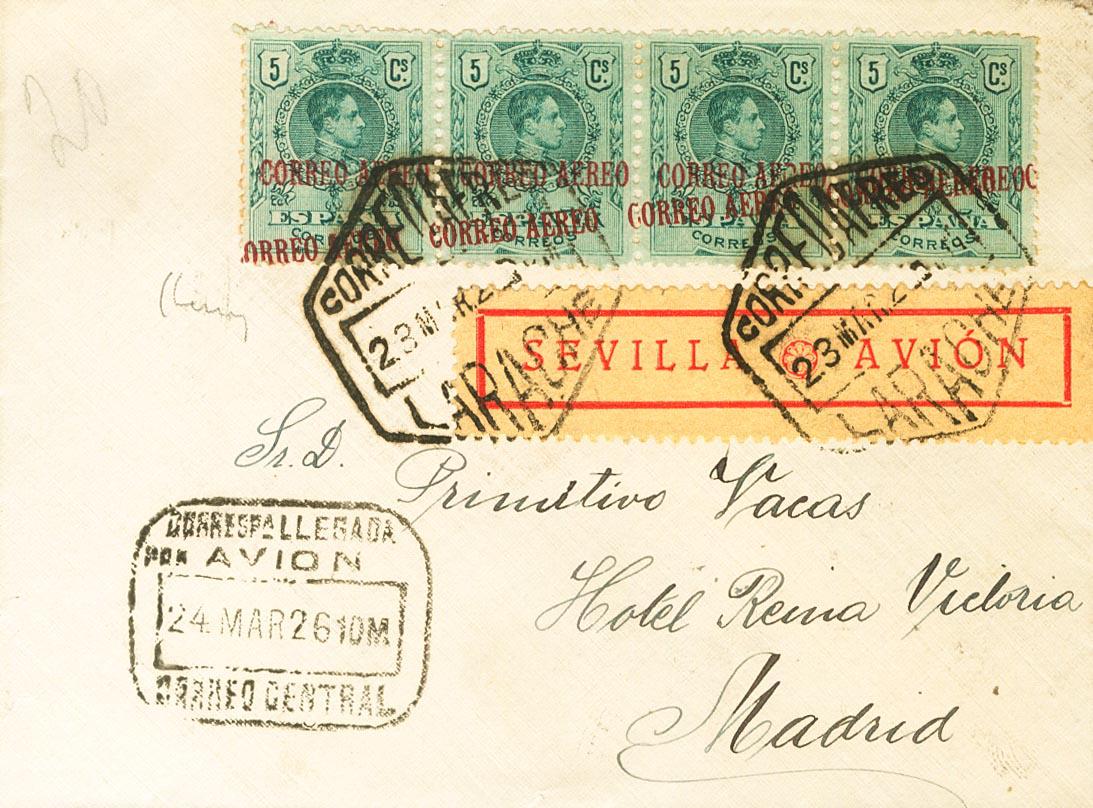 20
5 Cs. 5 Cs. 5 Cs. 5 Cs.
CORREO AEREO CORREO AEREO CORREO AEREO CORREO AEREO
ESPAÑA ESPAÑA ESPAÑA ESPAÑA
CORREO AEREO CORREO AEREO CORREO AEREO
CORREOS CORREOS CORREOS CORREOS
23 MAR 2
LARACHE
23 MAR 2
LARACHE
SEVILLA AVIÓN
Sr. D.
Primitivo Vacas
Hotel Reina Victoria
Madrid
CORRESPA LLEGADA
POR AVION
24 MAR 26 10M
CORREO CENTRAL